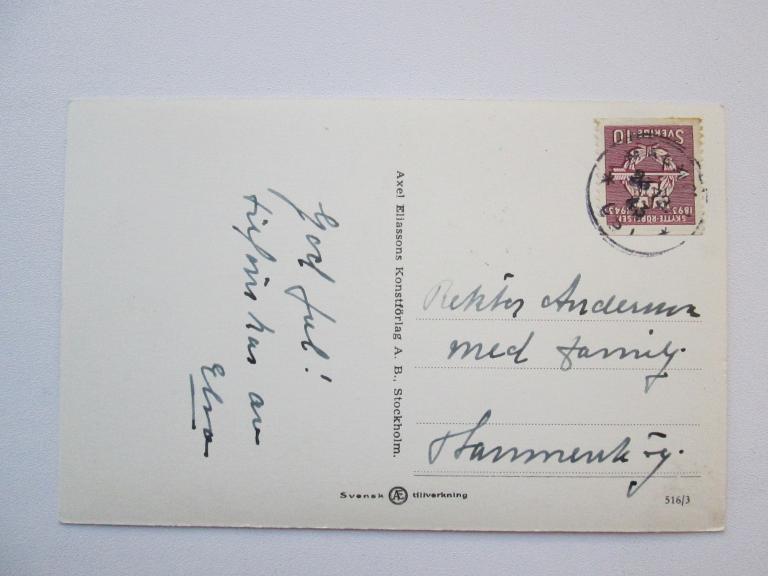 God Jul!
tillönskas av
Elsa
Axel Eliassons Konstförlag A. B., Stockholm.
Svensk Æ tillverkning
SVERIGE 10
SKYTTE-RÖRELSEN
1893 1943
Rektor Andersson
med familj.
Hammenhög.
516/3